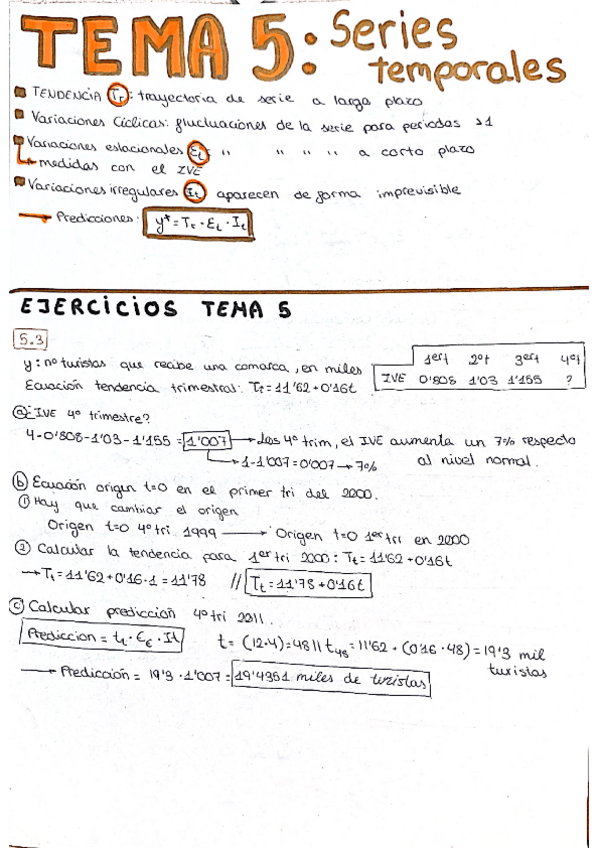 TEMA 5: Series temporales
TENDENCIA Tt: trayectoria de serie a largo plazo
Variaciones Cíclicas: fluctuaciones de la serie para periodos >1
Variaciones estacionales Et " " " " a corto plazo
medidas con el IVE
Variaciones irregulares It aparecen de forma imprevisible
Predicciones: y* = Tt · Et · It
EJERCICIOS TEMA 5
5.3
y: nº turistas que recibe una comarca, en miles
Ecuación tendencia trimestral: Tt = 11'62 + 0'16t
1ert 2ot 3ert 4ot
IVE 0'808 1'03 1'155 ?
a) IVE 4º trimestre?
4-0'808-1'03-1'155 = 1'007 → Los 4º trim, el IVE aumenta un 7% respecto
1-1'007 = 0'007 → 7% al nivel normal.
b) Ecuación origen t=0 en el primer tri del 2000.
① Hay que cambiar el origen
Origen t=0 4º tri 1999 → Origen t=0 1er tri en 2000
② Calcular la tendencia para 1er tri 2000: Tt = 11'62 + 0'16t
→ T1 = 11'62 + 0'16·1 = 11'78 // Tt = 11'78 + 0'16t
c) Calcular predicción 4º tri 2011.
Prediccion = tt · Et · It t = (12·4) = 48 // t48 = 11'62 + (0'16 · 48) = 19'3 mil
turistas
→ Predicción = 19'3 · 1'007 = 19'4351 miles de turistas